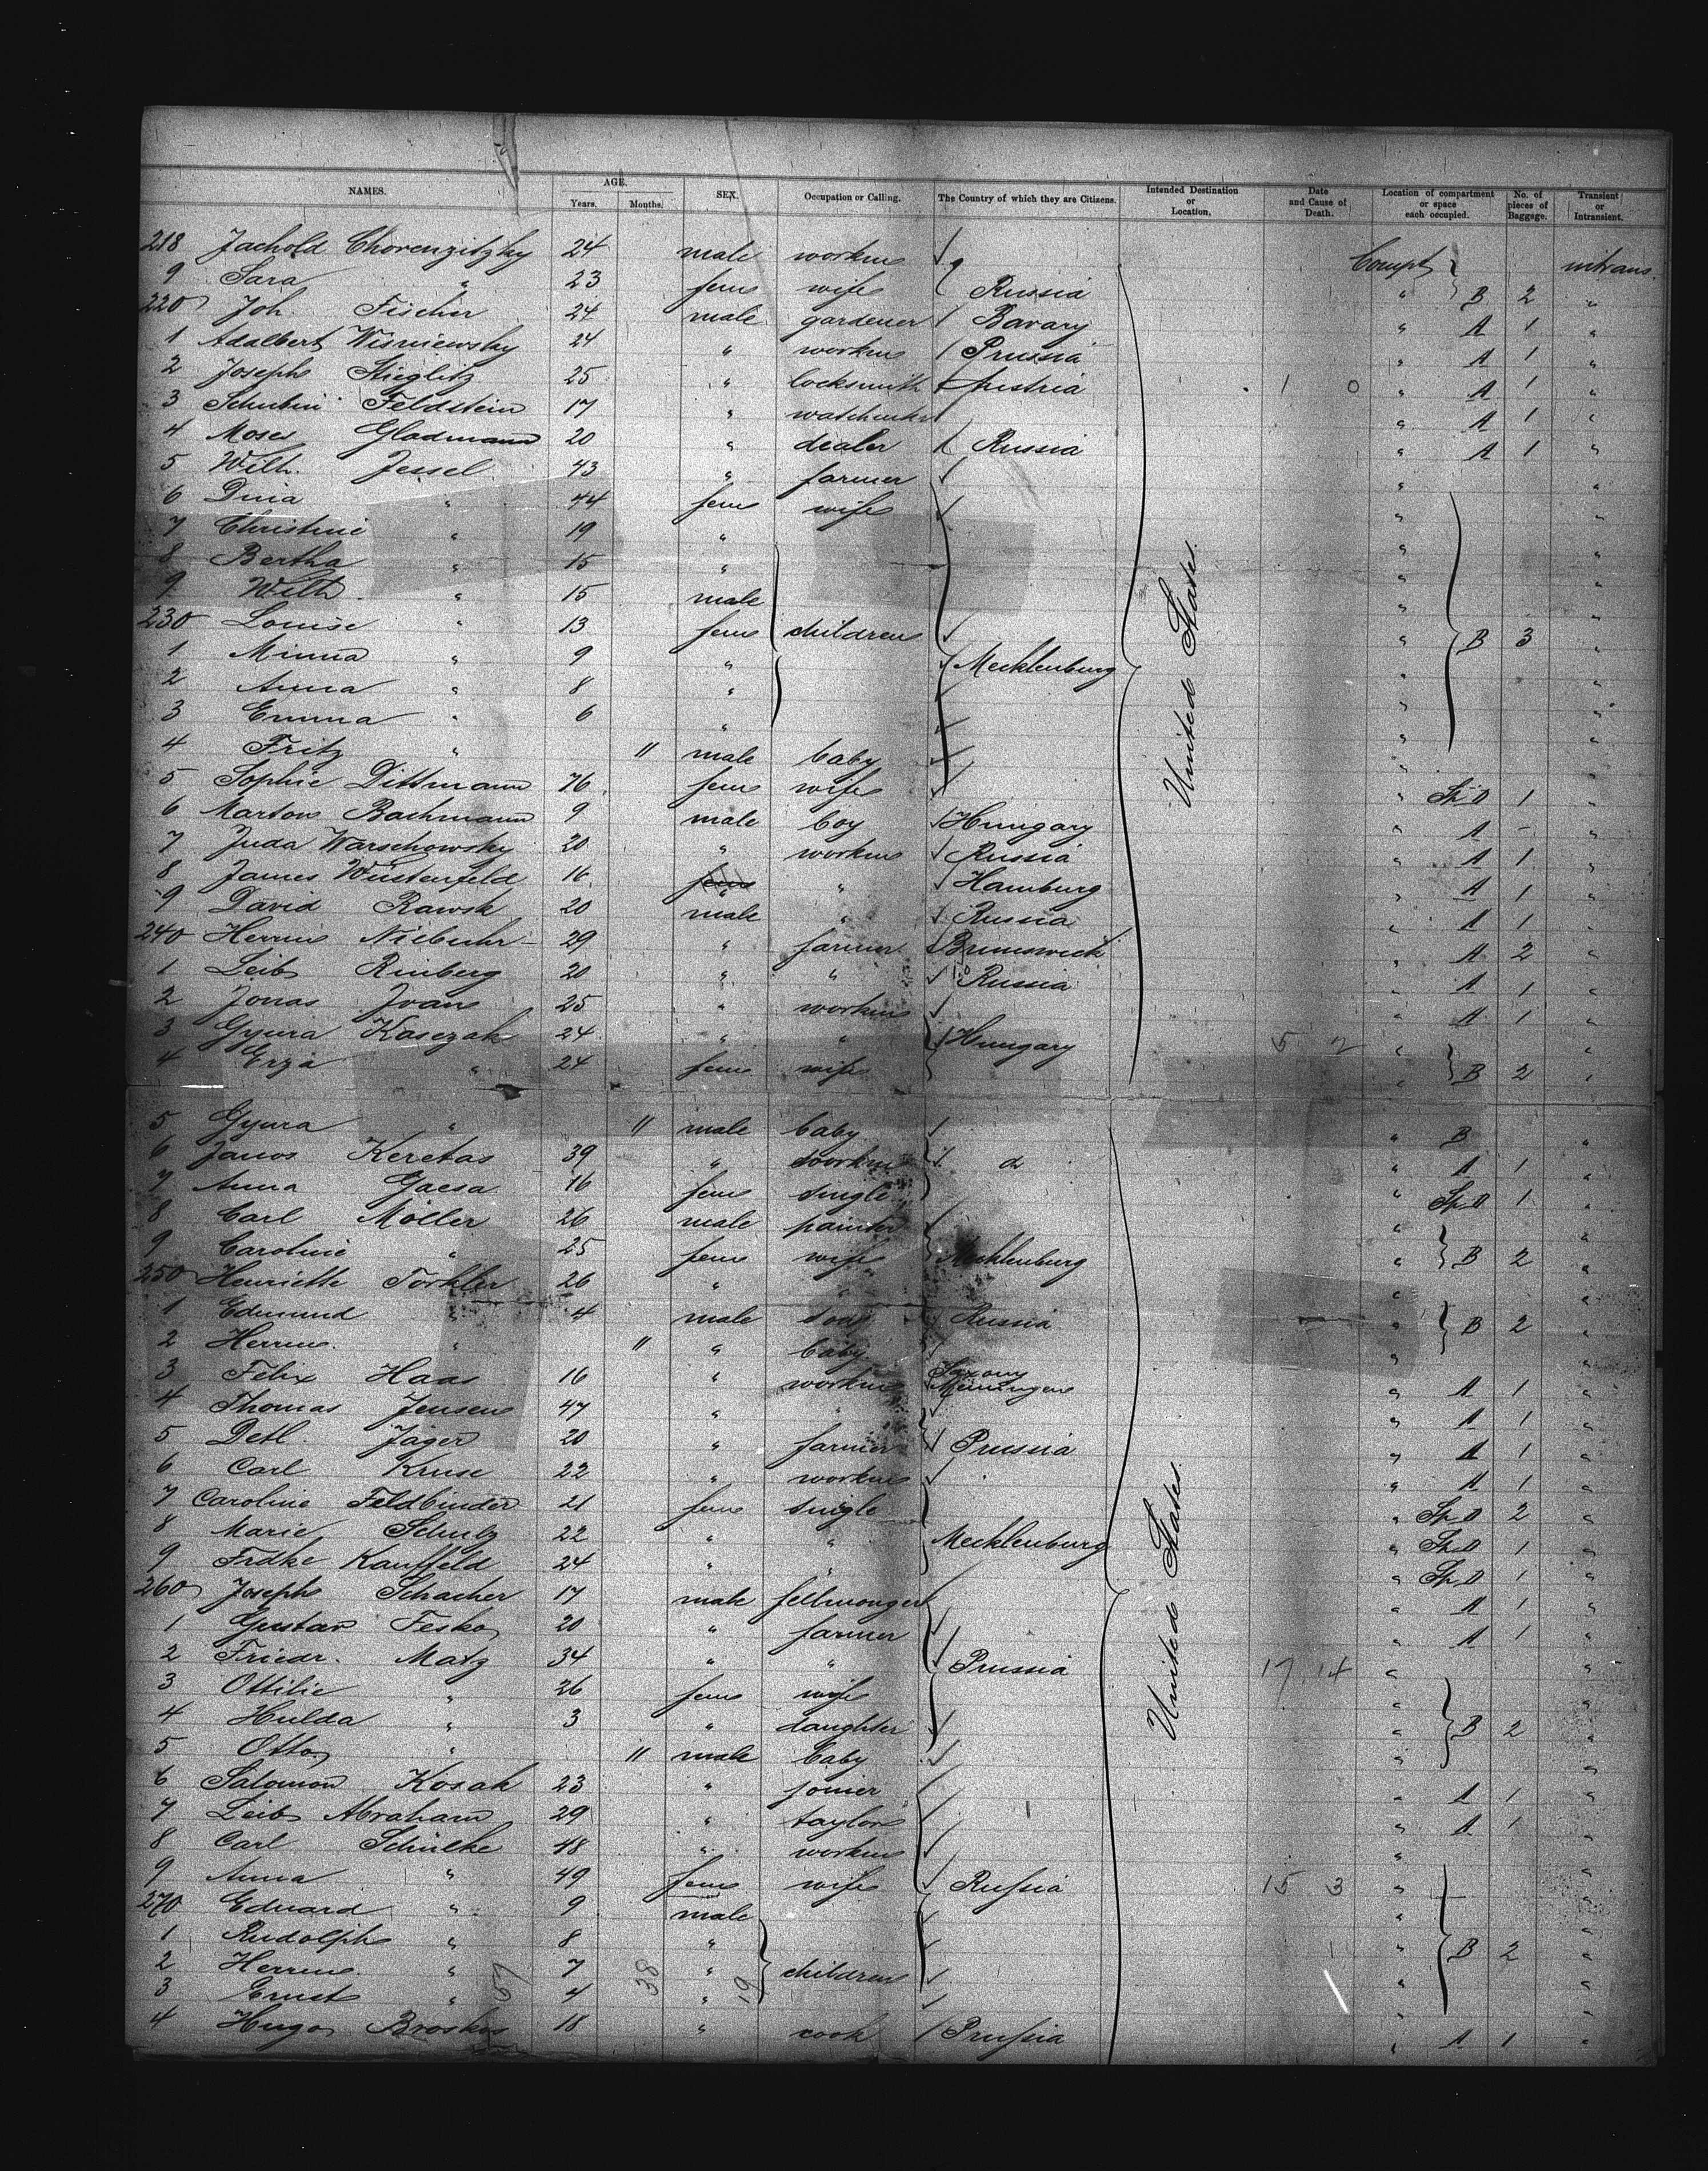 NAMES. AGE. Years. Months. SEX. Occupation or Calling. The Country of which they are Citizens. Intended Destination or Location. Date and Cause of Death. Location of compartment or space each occupied. No. of pieces of Baggage. Transient or Intransient.
218 Jachold Chorenzitzky 24 male workm Compt intrans.
9 Sara " 23 fem wife Russia " B 2 "
220 Joh. Fischer 24 male gardener Bavary " A 1 "
1 Adalbert Wisniewsky 24 " workm Prussia " A 1 "
2 Joseph Stieglitz 25 " locksmith Austria 1 0 " A 1 "
3 Feldstein 17 " " A 1 "
4 Moses Gladmann 20 " dealer Russia " A 1 "
5 Wilh. Jessel 43 " farmer " "
6 Dina " 44 fem wife " "
7 Christine " 19 " " "
8 Bertha " 15 " " "
9 Wilh. " 15 male " "
230 Louise " 13 fem children " B 3 "
1 Minna " 9 " Mecklenburg " "
2 Anna " 8 " " "
3 Emma " 6 " " "
4 Fritz " 11 male baby " "
5 Sophie Dittmann 76 fem wife " Sp.D 1 "
6 Marton Bachmann 9 male boy Hungary " A - "
7 Juda Warschowsky 20 " workm Russia " A 1 "
8 James Wüstenfeld 16 " " Hamburg " A 1 "
9 David Rawsk 20 male " Russia " A 1 "
240 Herm Niebuhr 29 " farmer Brunswick " A 2 "
1 Leib Rinberg 20 " " Russia " A 1 "
2 Jonas Ivan 25 " workm " A 1 "
3 Gyura Kasczak 24 " " Hungary 5 2 " "
4 Erza " 24 fem wife " B 2 "
5 Gyura " 11 male baby " B "
6 Janos Keretas 39 " workm d " A 1 "
7 Anna Gaesa 16 fem single " Sp.D 1 "
8 Carl Möller 26 male painter " "
9 Caroline " 25 fem wife Mecklenburg " B 2 "
250 Henriette Torkler 26 " " " "
1 Edmund " 4 male son Russia " B 2 "
2 Herm. " 11 " baby " "
3 Felix Haas 16 " workm Saxony Meiningen " A 1 "
4 Thomas Jensen 47 " " " A 1 "
5 Detl. Jäger 20 " farmer Prussia " A 1 "
6 Carl Kruse 22 " workm " A 1 "
7 Caroline Feldbinder 21 fem single " Sp.D 2 "
8 Marie Schulz 22 " " Mecklenburg " Sp.D 1 "
9 Frdke Kauffeld 24 " " " Sp.D 1 "
260 Joseph Schacher 17 male fellmonger " A 1 "
1 Gustav Fesko 20 " farmer " A 1 "
2 Friedr. Matz 34 " " Prussia 17 14 " "
3 Ottilie " 26 fem wife " "
4 Hulda " 3 " daughter " B 2 "
5 Otto " 11 male baby " "
6 Salomon Kosak 23 " joiner " A 1 "
7 Leib Abraham 29 " taylor " A 1 "
8 Carl Schülke 48 " workm " "
9 Anna " 49 fem wife Russia 15 3 " "
270 Eduard " 9 male " "
1 Rudolph " 8 " 1 " B 2 "
2 Herm. " 7 " children " "
3 Ernst " 4 " " "
4 Hugo Broskos 18 " cook Prussia " A 1 "
United States.
United States.
57 38 19